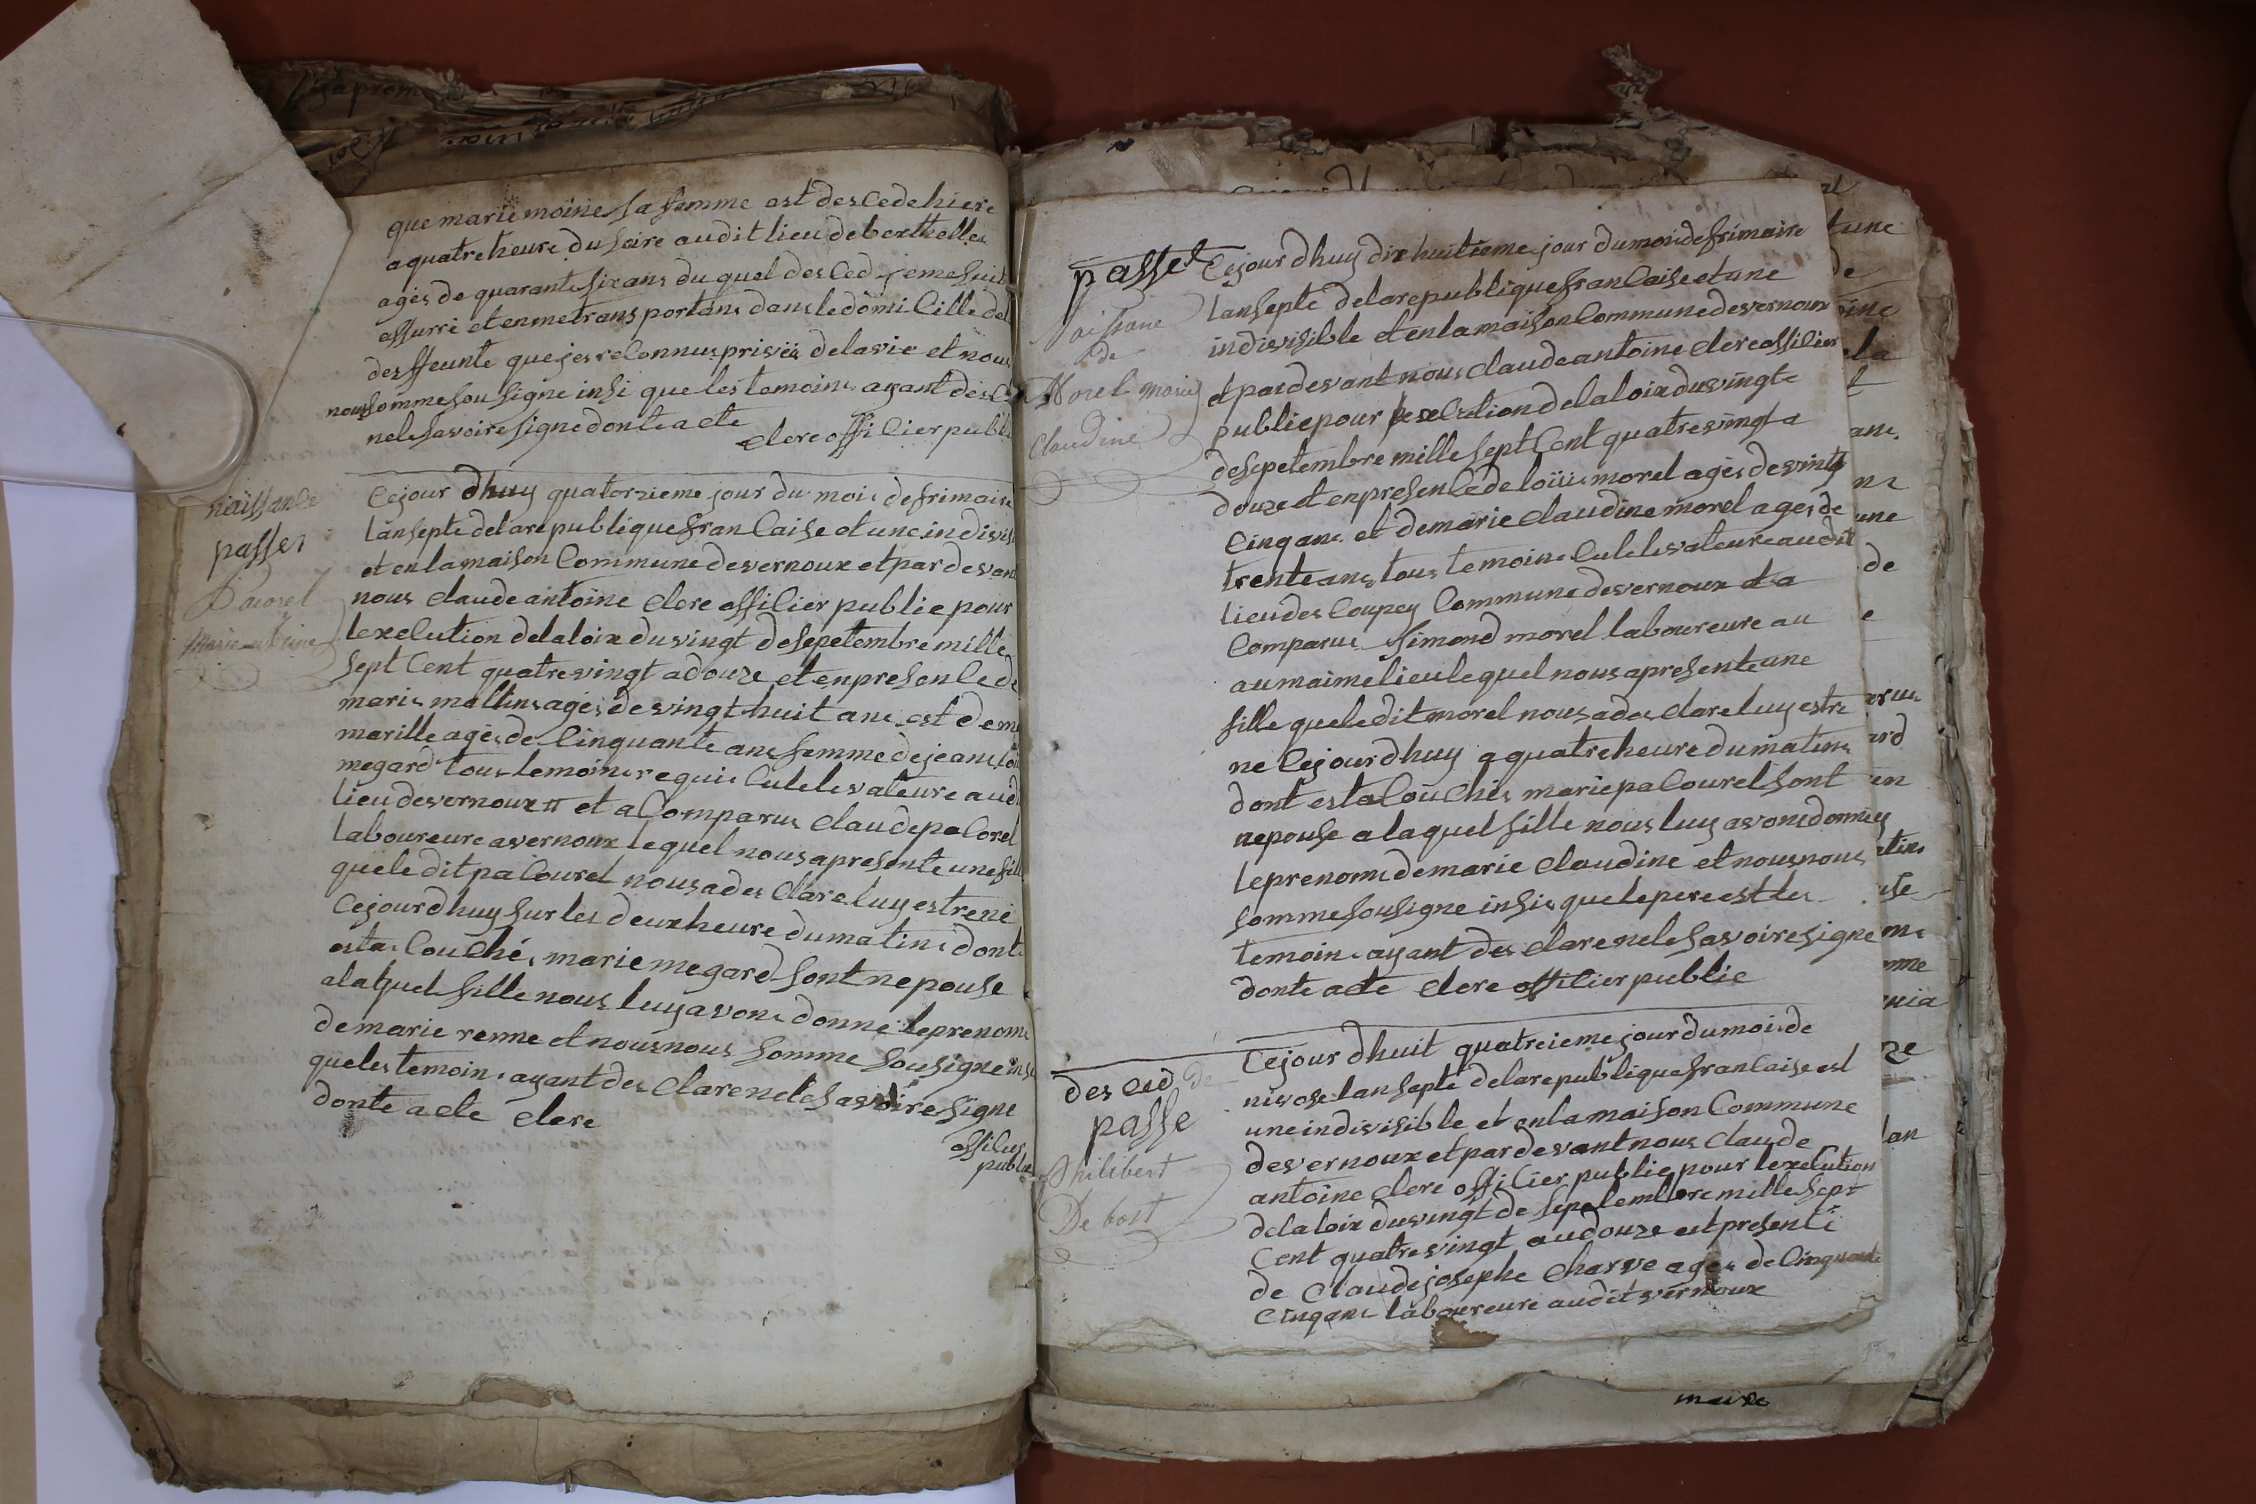 que marie moine sa femme est desCede hiere
a quatre heure du soire audit lieu de berthelles
agés de quarante six ans du quel desCed je me suit
assurré et en me trans portans dans le domiCille de
desffeunte que jes reConnus privéé de la vie et nous
nous somme sousigne insi que les temoins ayant desC
ne le savoire signe donte acte
clere offiCier publi
naissance
passer
Pacorel
marie
Cejour dhuy quatorzieme jour du mois de frimaire
lan septe de la republique franCaise et une indivis
et en la maison Commune de vernoux et par devan
nous claude antoine clere offiCier publie pour
lexeCution de la loix du vingt de sepetembre mille
sept Cent quatre vingt a douze et en presenCe de
marie mattin agés de vingt huit ans et de m
marille agés de Cinquante ans femme de jean
megard tous temoins requis Culetevateure aud
lieu de vernoux et a Comparus claude paCorel
laboureure a vernoux le quel nous a presente une fill
que le dit paCourel nous a des Clare luy estre né
Cejour dhuy sur les deux heure du matins donte
esta Couché marie megard sont nepouse
a laquel fille nous luy avons donné le prenoms
de marie renne et nous nous somme sousigne insi
que les temoins ayant des Clare ne le savoire signe
donte acte clere
offiCier
publie
passet
Naissance
de
Morel marie
Claudine
Cejour dhuy dix huitieme jour du mois de frimaire
lan septe de la republique franCaise et une
indivisible et en la maison Commune de vernoux
et par devant nous claude antoine clere offiCier
publie pour lexeCution de la loix du vingt
de sepetembre mille sept Cent quatre vingt a
douze et en presenCe de loüis morel agés de vingt
Cinq ans et de marie claudine morel agés de
trente ans tous temoins Culetevateure audit
lieu des Coupey Commune de vernoux et a
Comparus simond morel laboureure au
au maime lieu le quel nous a presente une
fille que le dit morel nous a des clare luy estre
ne Cejour dhuy a quatre heure du matins
dont esta Couchés marie paCourel sont
nepouse a la quel fille nous luy avons donnéy
le prenoms de marie claudine et nous nous
somme sousigne insi que le pere est les
temoins ayant des clare ne le savoire signe
donte acte clere offiCier publie
des Ced de
passe
Philibert
De bost
Cejour dhuit quatreieme jour du mois de
nivose lan septe de la republique franCaise est
une indivisible et en la maison Commune
de vernoux et par devant nous claude
antoine clere offiCier publie pour lexeCution
de la loix du vingt de sepetembre mille sept
Cent quatre vingt au douze est presente
de claude josephe Charve agés de Cinquante
Cinq ans laboureure audit vernoux
maire